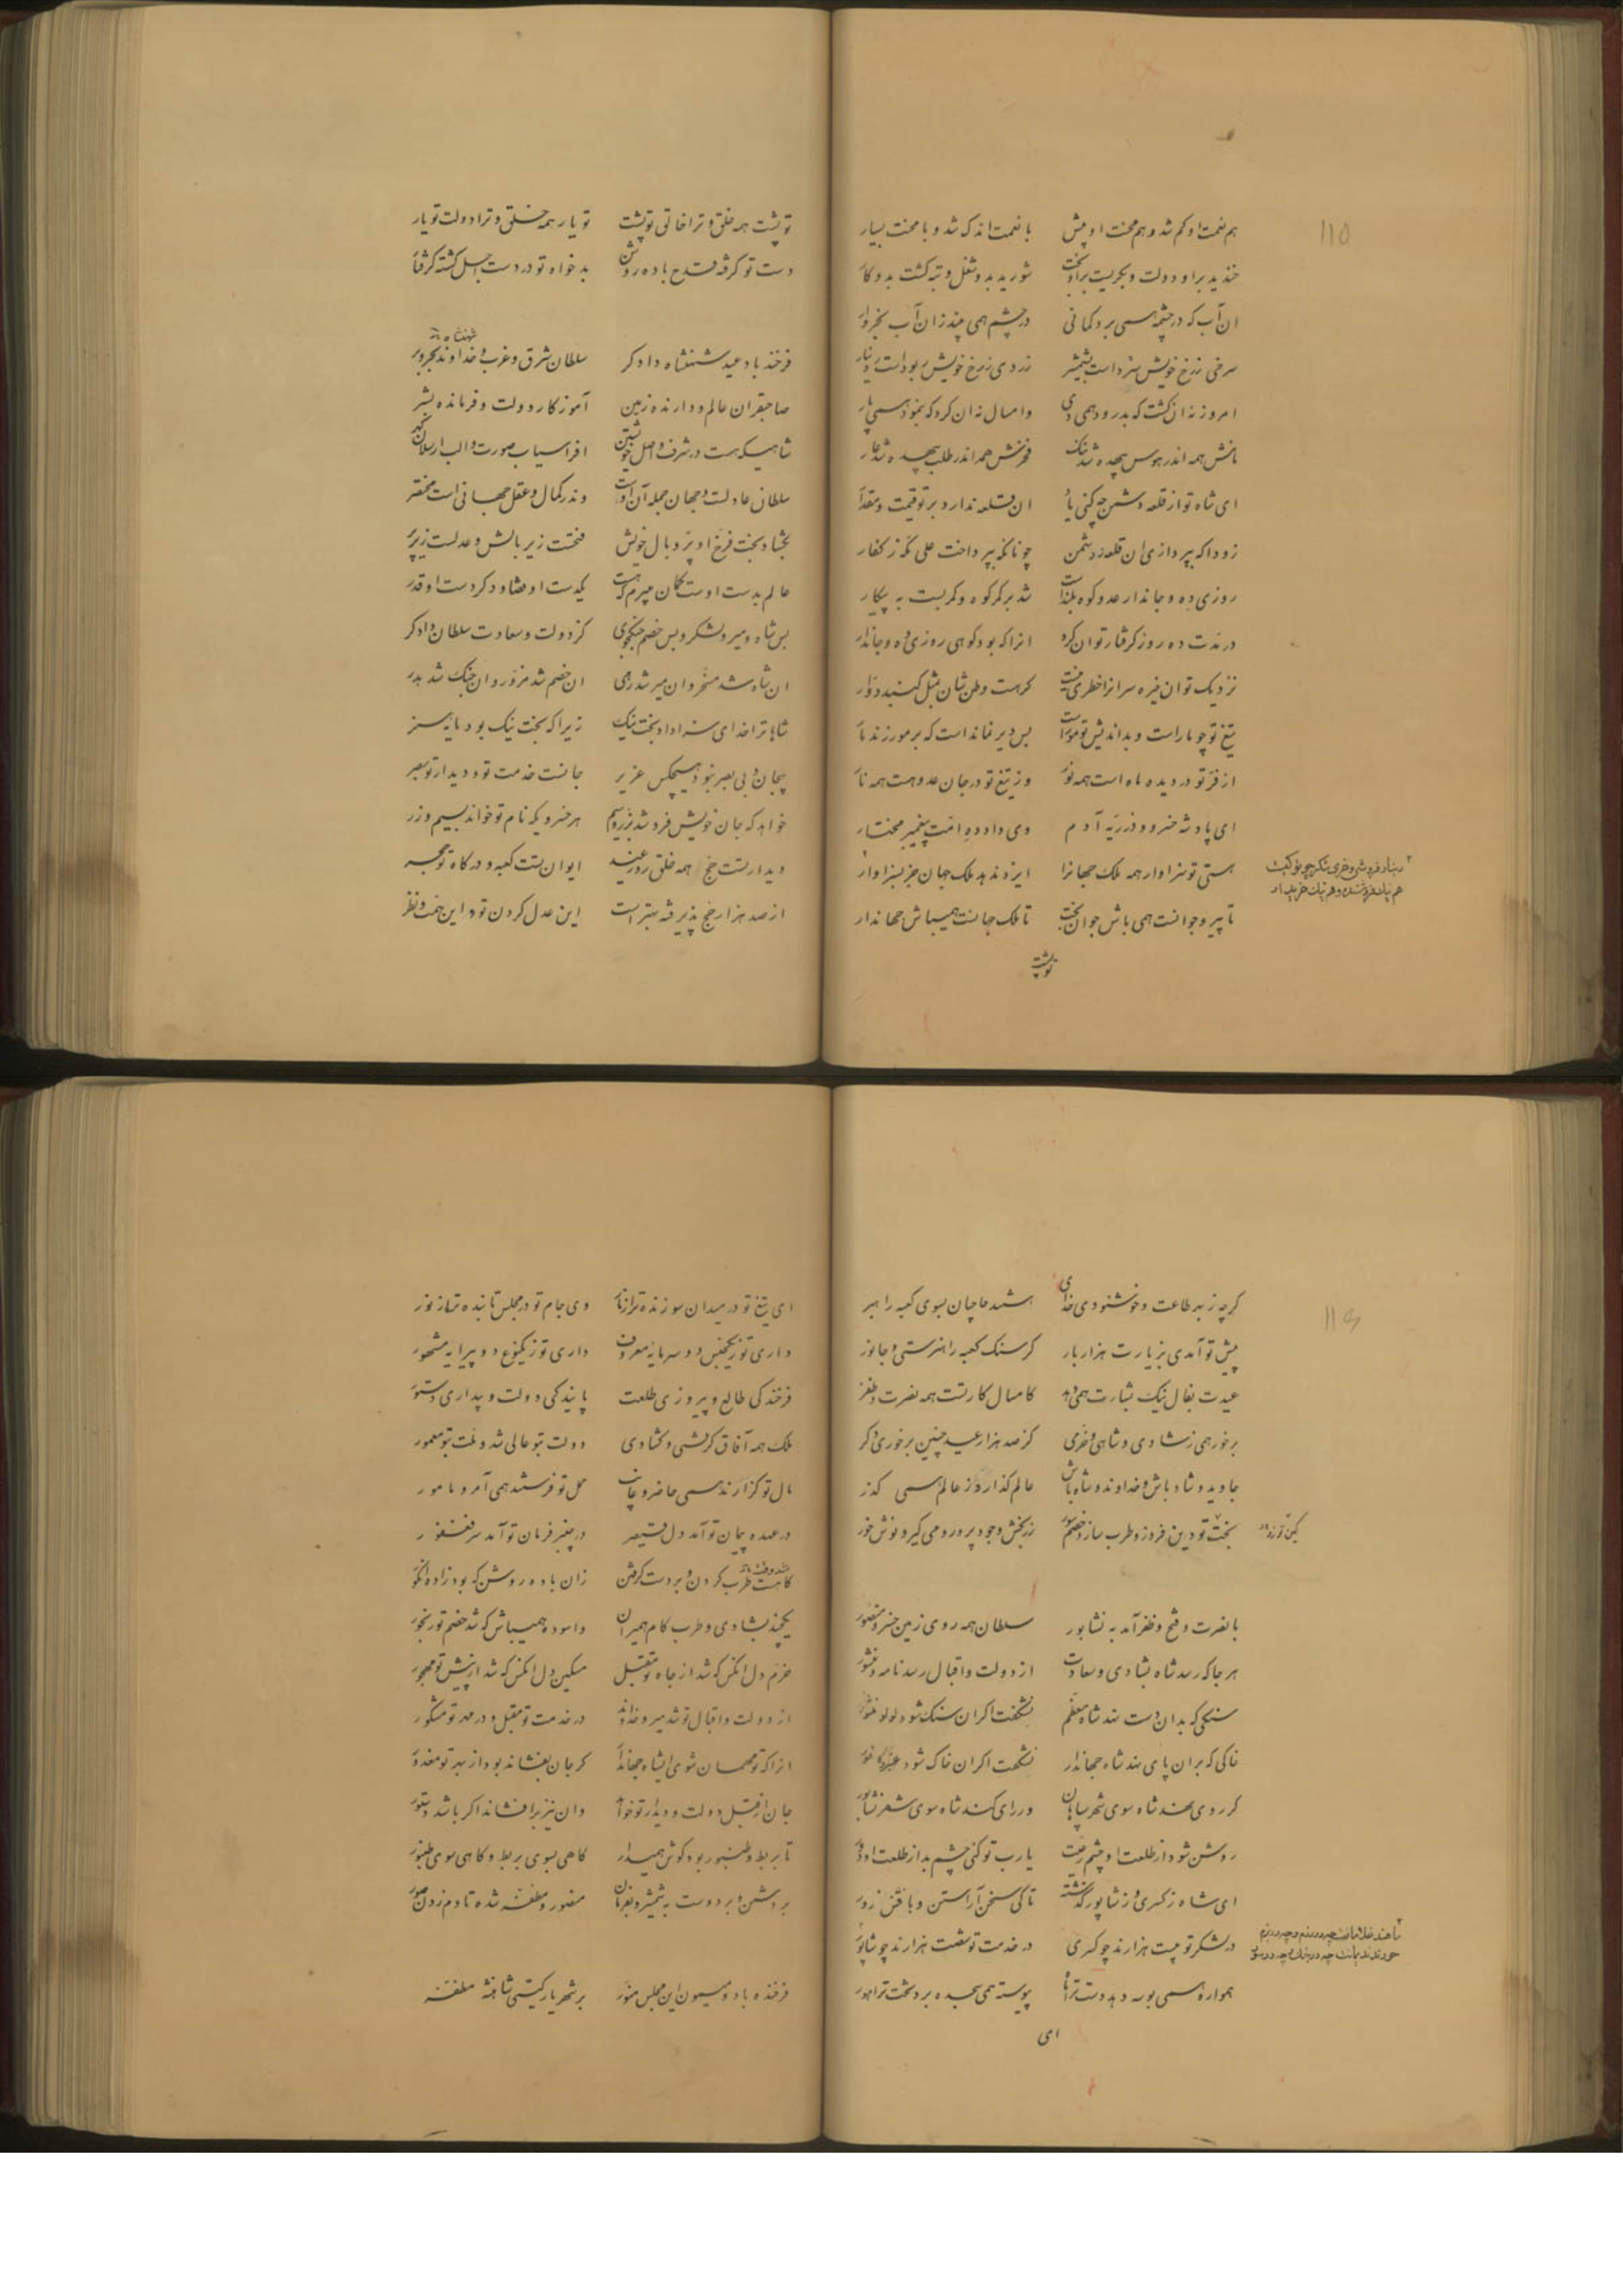 ۱۱۵
هم نعمت او کم شد و هم محنت او بیش با نعمت اندک شد و با محنت بسیار
خندید بر او دولت و بگریست بر او بخت شورید بدو شغل و تبه گشت بدو کار
ان آب که در چشمه همی برد کمانی در چشم همی بیند زان آب بخروار
سرخی ز رخ خویش سپرداست بشمشیر زردی ز رخ خویش ربوداست ز دینار
امروز نه ان گشت که بدرود همی دی وامسال نه ان کرد که بنمود همی پار
نامش همه اندر هوس بیهده شد ننگ فخرش همه اندر طلب بیهده شد عار
ای شاه تو از قلعه دشمن چه کنی یاد ان قلعه ندارد بر تو قیمت و مقدار
زودا که بپردازی ان قلعه ز دشمن چونانکه بپرداخت علی مکه ز کفار
روزی ده و جاندار عدو کوه بلنداست شد بر کمر کوه و کمر بست به پیکار
در مدت ده روز گرفتار توان کرد انرا که بود کوهی روزی ده و جاندار
نزدیک تو ان خیره سرانرا خطری نیست گر هست وطن شان بمثل گنبد دوار
تیغ تو چو ماراست و بداندیش تو موراست بس دیر نمانداست که بر مور زند مار
از فر تو در دیده ماه است همه نور وز تیغ تو در جان عدو هست همه نار
ای پادشه خسرو و ذریه آدم وی داور امت پیغمبر مختار
هستی تو سزاوار همه ملک جهانرا ایزد ندهد ملک جهان جز بسزاوار
تا پیر و جوانست همی باش جوان بخت تا ملک جهانست همیباش جهاندار
تو پشت
تو پشت همه خلق و ترا خالق تو پشت تو یار همه خلق و ترا دولت تو یار
دست تو گرفته قدح باده روشن بدخواه تو در دست اجل گشته گرفتار
فرخنده باد عید شهنشاه دادگر سلطان شرق و غرب و خداوند بحر و بر
صاحبقران عالم و دارنده زمین آموزگار دولت و فرمانده بشر
شاهیکه هست در شرف و اصل خویشتن افراسیاب صورت و الب ارسلان گهر
سلطان عادلست و جهان جمله آن اوست وندر کمال و عقل جهانی است مختصر
بگشاد بخت فرخ او پر و بال خویش فتحست زیر بالش و عدلست زیر پر
عالم بدست اوست گمان میبرم که هست یکدست او قضا و دگر دست او قدر
بس شاه و میر و لشکر و بس خصم جنگجوی کز دولت و سعادت سلطان دادگر
ان شاه شد مسخر وان میر شد رهی ان خصم شد مزور وان جنگ شد بدر
شاها ترا خدای سزا داد بخت نیک زیرا که بخت نیک بود مایه هنر
بیجان و بی بصر نبود هیچکس عزیز جانست خدمت تو و دیدار تو بصر
خواهد که جان خویش فروشد بزر و سیم هر خسرویکه نام تو خواند بسیم و زر
دیدار تست حج همه خلق روز عید ایوان تست کعبه و درگاه تو حجر
از صد هزار حج پذیرفته بهتر است این عدل کردن تو در این ختمت و نظر
گرچه ز بهر طاعت و خوشنودی خدای باشد حاجیان بسوی کعبه راهبر
پیش تو آمدی بزیارت هزار بار گر سنگ کعبه را هنرستی و جانور
عیدت بفال نیک بشارت همی دهد کامسال کار تست همه نصرت و ظفر
برخور همی ز شادی و شاهی و خرمی کز صد هزار عید چنین برخوری دگر
جاوید و شاد باش و خداوند و شاه باش عالم گذار و ز عالم همی گذر
بخت تو دین فروز و طرب ساز و خصم سوز زر بخش و جود پرور و می گیر و نوش خور
با نصرت و فتح و ظفر آمد به نشابور سلطان همه روی زمین خسرو منصور
هر جا که رسد شاه بشادی و سعادت از دولت و اقبال رسد نامه و منشور
سنگی که بدان دست نهد شاه معظم نشگفت اگر ان سنگ شود لولو منثور
خاکی که بران پای نهد شاه جهاندار نشگفت اگر ان خاک شود عنبر و کافور
گر روی نهد شاه سوی شهر سپاهان ور رای کند شاه سوی شهر نشابور
روشن شود از طلعت او چشم رعیت یارب تو کنی چشم بد از طلعت او دور
ای شاه ز کسری و ز شاپور گذشته تا کی سخن آراستن و یافتن زور
در لشکر تو بیست هزارند چو کسری در خدمت تو شصت هزارند چو شاپور
همواره همی بوسه دهد دست ترا ماه پیوسته همی سجده برد تخت ترا هور
ای
ای تیغ تو در میدان سوزنده تر از نار وی جام تو در مجلس تابنده تر از نور
داری تو ز یکجنس دو سرمایه معروف داری تو ز یکنوع دو پیرایه مشهور
فرخندگی طالع و پیروزی طلعت پایندگی دولت و بیداری دستور
ملک همه آفاق گرفتی و گشادی دولت بتو عالی شد و ملت بتو معمور
مال تو گزارند همی حاضر و غایب حمل تو فرستند همی آمر و مامور
در عهده پیمان تو آمد دل قیصر در چنبر فرمان تو آمد سر فغفور
گاهست طرب کردن و بر دست گرفتن زان باده روشن که بود زاده انگور
یکچند بشادی و طرب کام همیران واسوده همیباش که شد خصم تو رنجور
خرم دل انکس که شد از جاه تو مقبل مسکین دل انکس که شد از پیش تو مهجور
از دولت و اقبال تو شد میر و خداوند در خدمت تو مقبل و در مهر تو مشکور
انرا که تو مهمان شوی ایشاه جهاندار گر جان بفشاند بود از بهر تو معذور
جان از قبل دولت و دیدار تو خواهد وان نیز برافشاند اگر باشد دستور
تا بربط و طنبور بود گوش همیدار گاهی بسوی بربط و گاهی سوی طنبور
بر دشمن و بر دوست به شمشیر و بفرمان منصور و مظفر شده تا دم زدن صور
فرخنده باد و میمون این مجلس منور بر شهریار گیتی شاهنشه مظفر